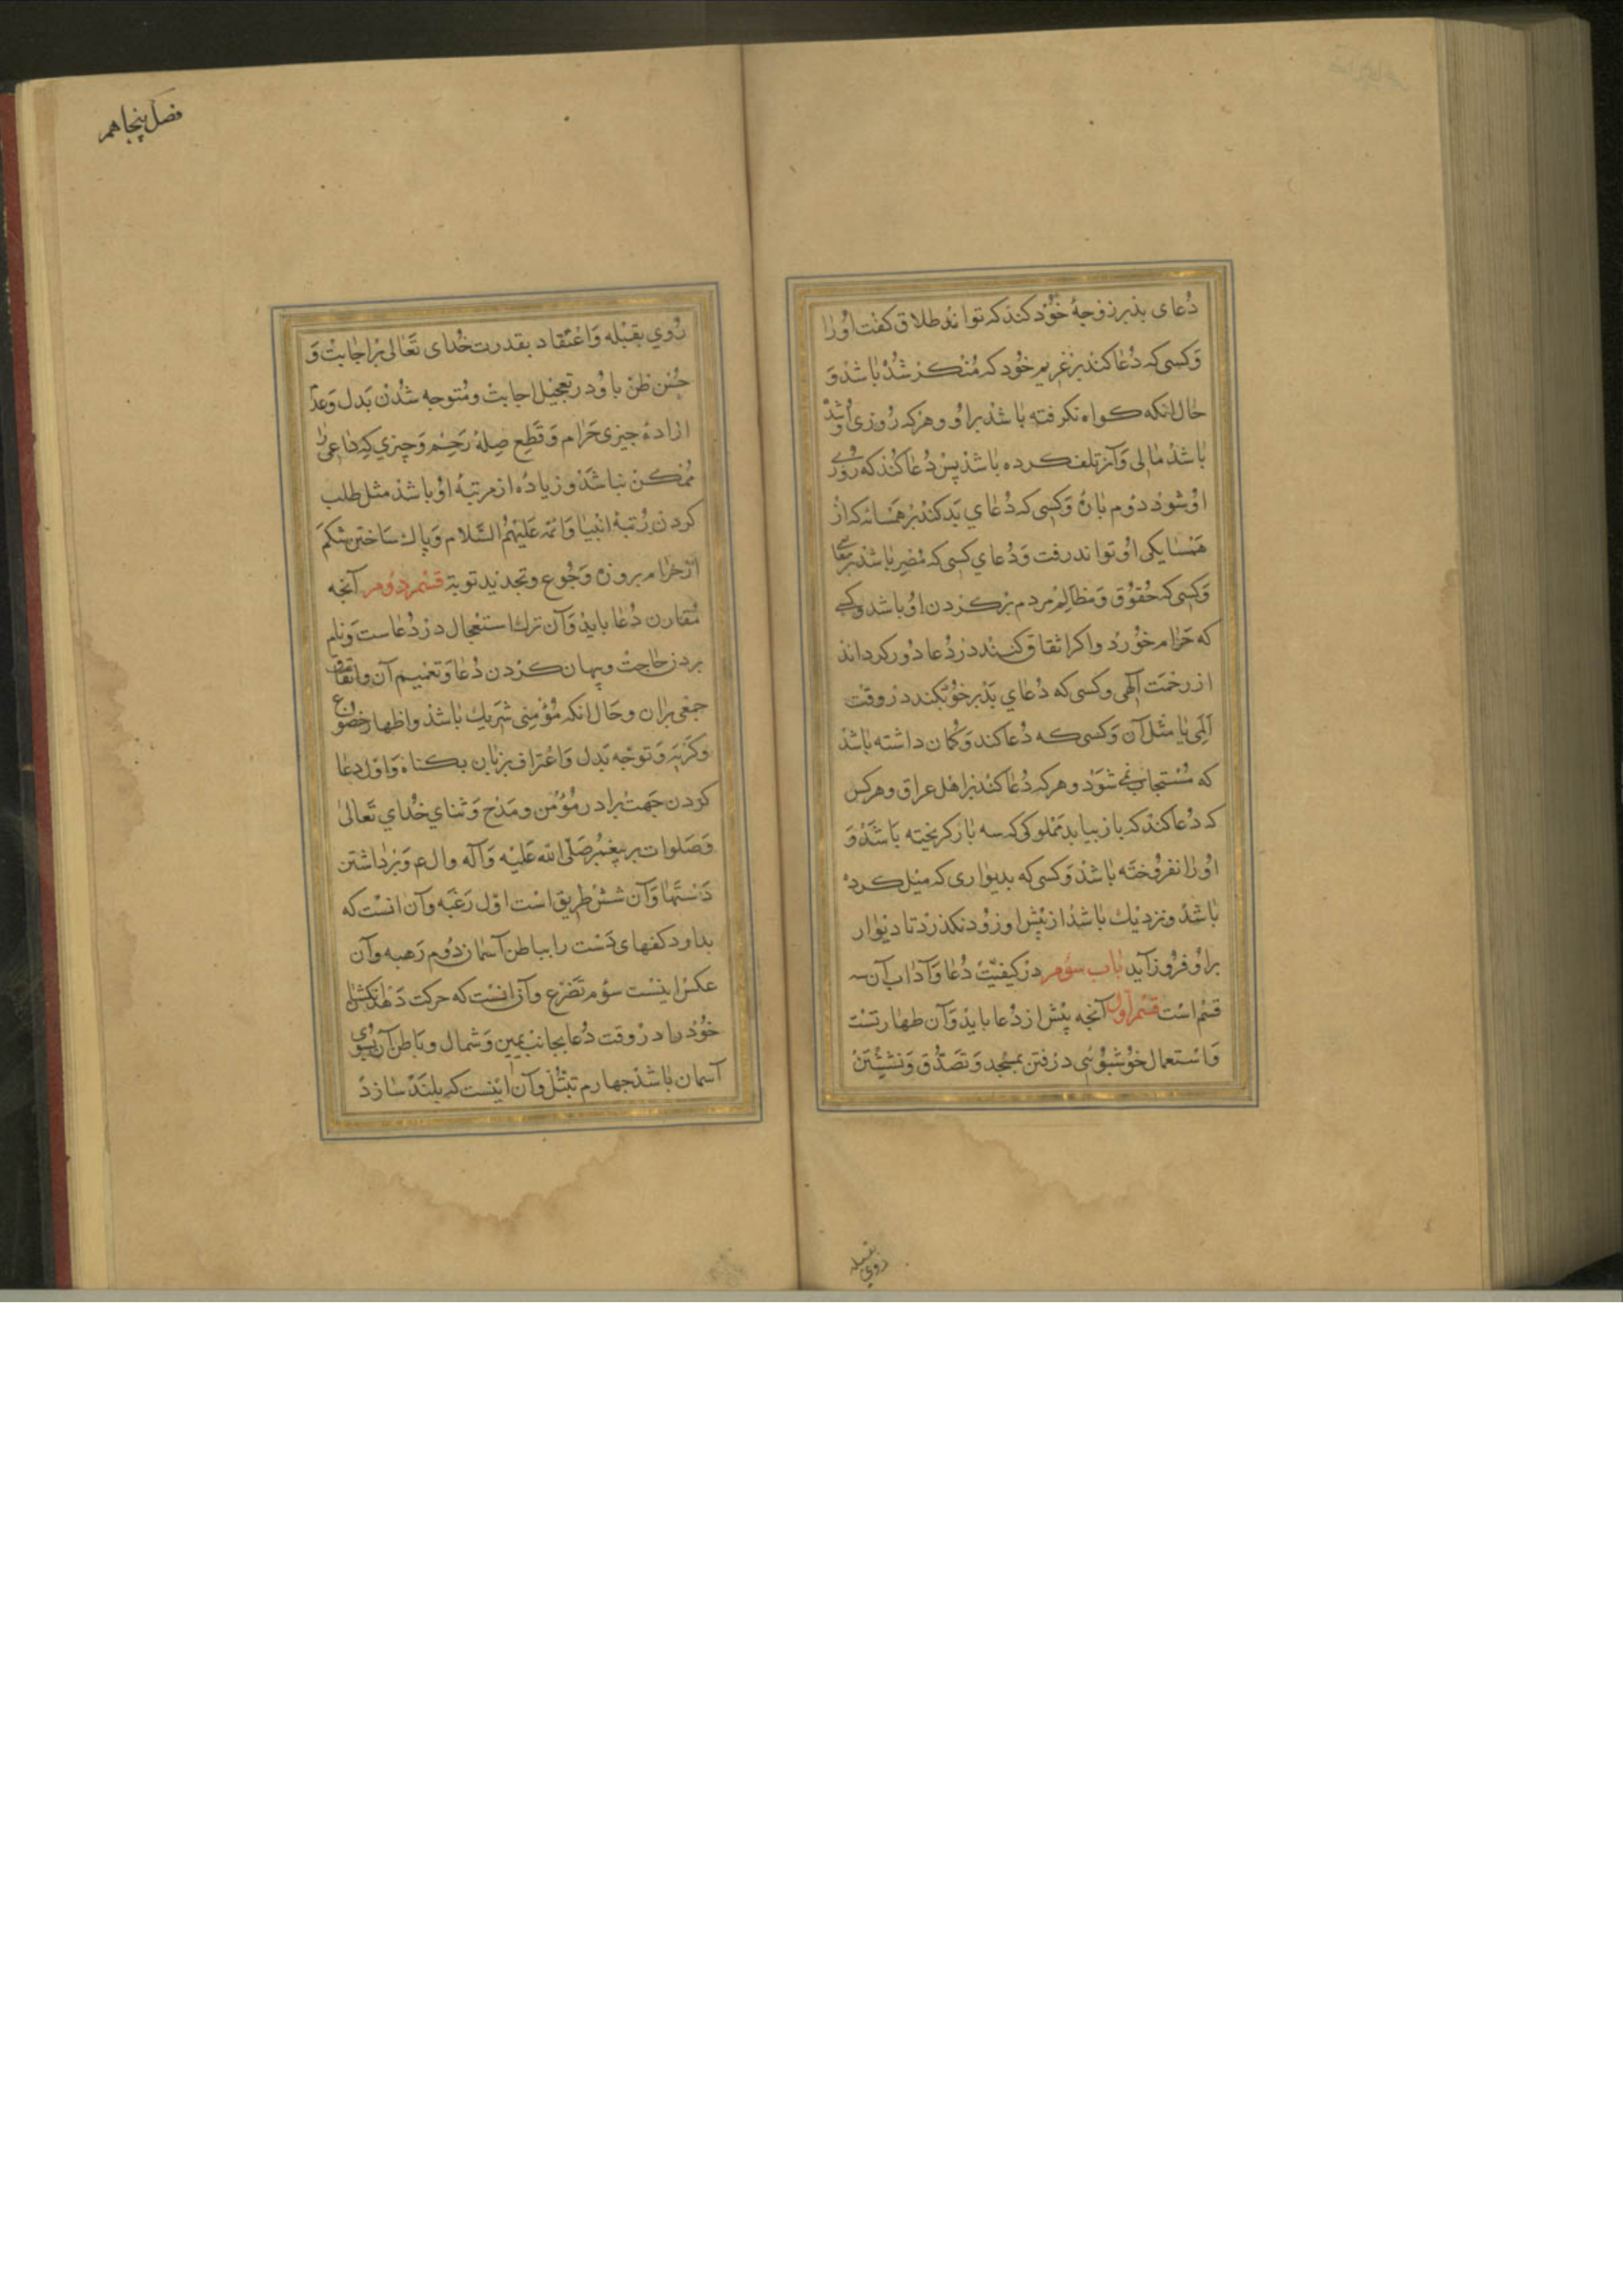 دُعای بد بر زوجهٔ خود کند که تواند طلاق کفت اورا
وکسی که دُعا کند بر غریم خود که منکر شده باشد و
حال انکه کواه نکرفته باشد براو وهرکه روزی اوشد
باشد مالی وآنرا تلف کرده باشد پس دُعا کند که روزی
اوشود دوم باره وکسی که دُعای بد کند بر همسایه که از
همسایکی او تواند رفت ودُعای کسی که مصر باشد بر معا
وکسی که حقوق ومظالم مردم بر کردن او باشد وکسی
که حرام خورد واکر اتفاق کنند در دُعا دور کرداند
از رحمت آلهی وکسی که دُعای بد بر خود بکند در وقت
المی یا مثل آن وکسی که دُعا کند وکمان داشته باشد
که مستجاب نمی شود وهرکه دُعا کند بر اهل عراق وهرکس
که دُعا کند که باز بیاید مملوکی که سه بار کریخته باشد و
اورا نفروخته باشد وکسی که بدیواری که میل کرده
باشد ونزدیك باشد از پیش او زود نکذرد تا دیوار
براو فرود آید باب سوم در کیفیت دُعا وآداب آن سه
قسم است قسم اول آنچه پیش از دُعا باید وآن طهارتست
واستعمال خوشبوئی ورفتن بمسجد وتصدق ونشستن
روی بقبله
فصل پنجاهم
روی بقبله واعتقاد بقدرت خدای تعالی بر اجابت و
حسن ظن باو در تعجیل اجابت ومتوجه شدن بدل وعدم
ارادهٔ چیزی حرام وقطع صلهٔ رحم وچیزی که داعی را
ممکن نباشد وزیاده از مرتبهٔ او باشد مثل طلب
کردن رتبهٔ انبیا وائمه علیهم السلام وپاك ساختن شکم
از حرام بروزه وجوع وتجدید توبه قسم دوم آنچه
مقارن دُعا باید وآن ترك استعجال در دُعاست ونام
بردن حاجت وپنهان کردن دُعا وتعمیم آن واتفاق
جمعی بران وحال انکه مؤمنی شریك باشد واظهار خضوع
وکریه وتوجه بدل واعتراف بزبان بکناه واول دعا
کردن جهت برادر مؤمن ومدح وثنای خدای تعالی
وصلوات بر پیغمبر صلی الله علیه وآله وال ع وبرداشتن
دستها وآن شش طریق است اول رغبه وآن انست که
بدارد کفهای دست را بباطن آسمان دوم رهبه وآن
عکس اینست سوم تضرع وآن انست که حرکت دهد انکشتان
خود را در وقت دُعا بجانب یمین وشمال وباطن آن بسوی
آسمان باشد چهارم تبتل وآن اینست که بلند سازد